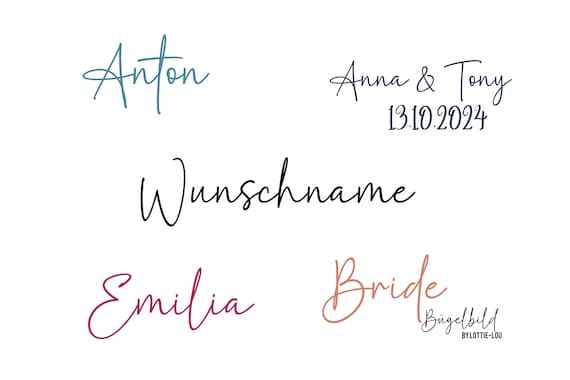 Anton
Anna & Tony
13.10.2024
Wunschname
Emilia
Bride
Bügelbild
BYLOTTIE-LOU